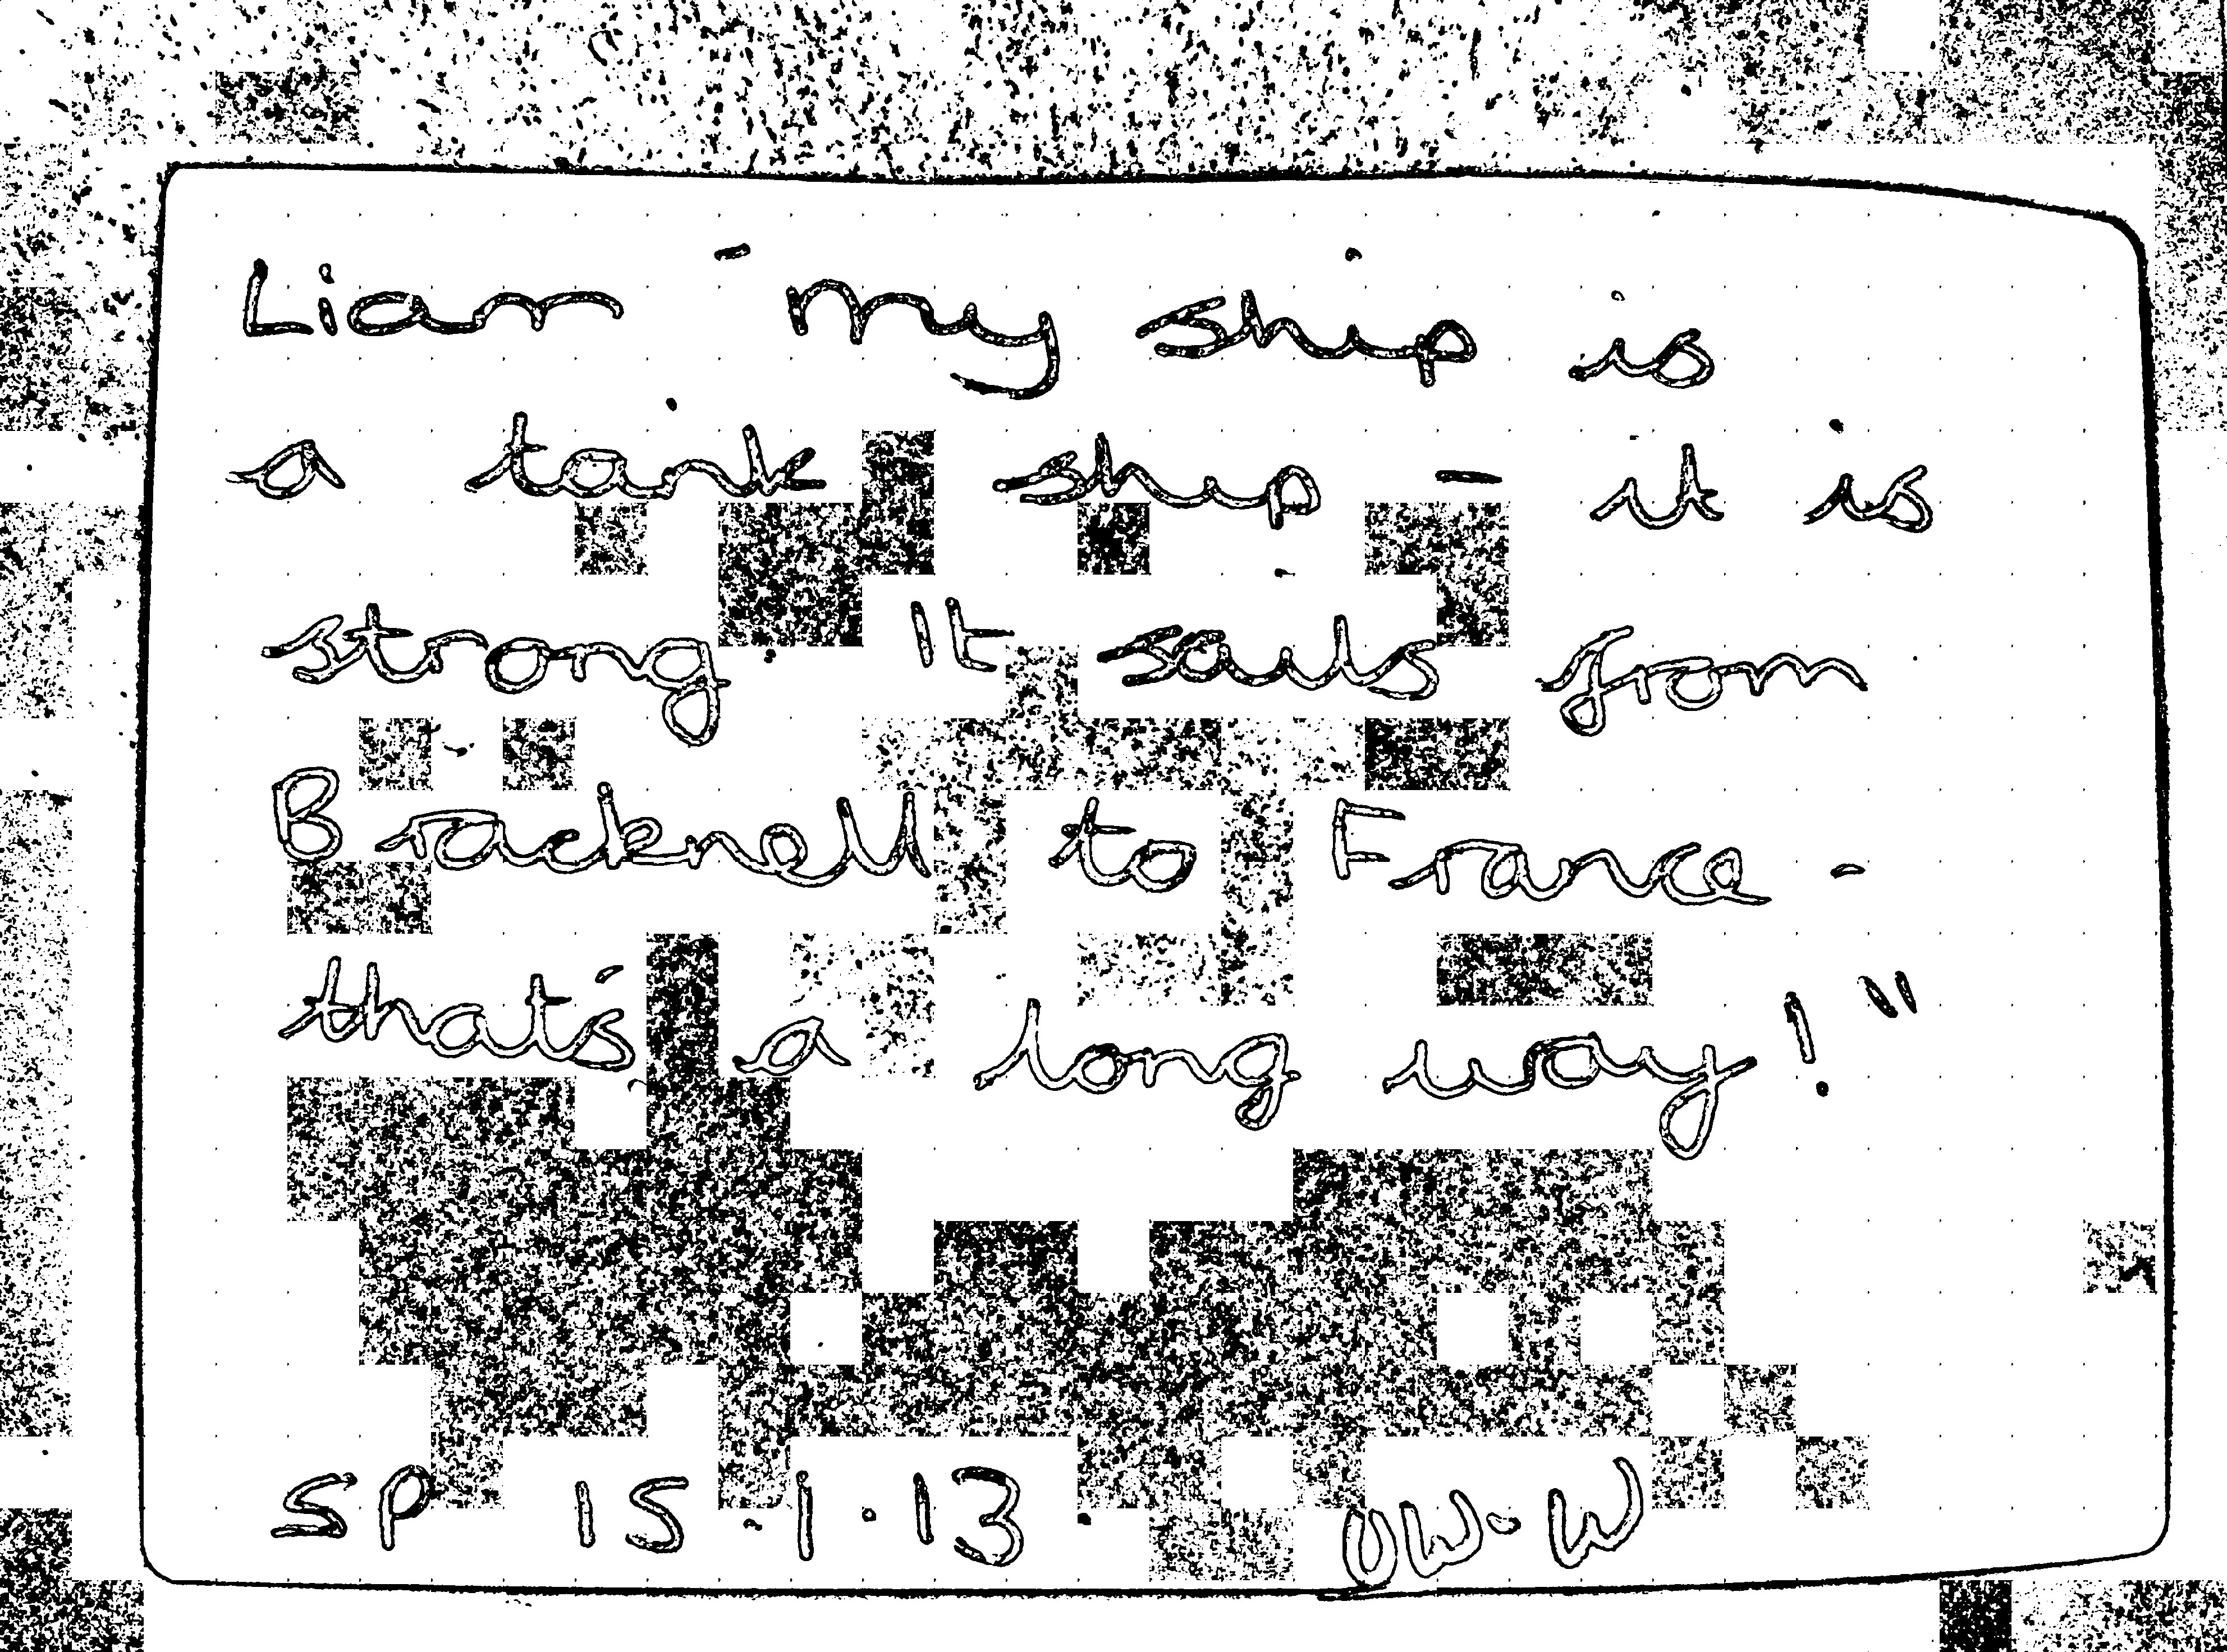 Liam - my ship is
a tank ship - it is
strong. It sails from
Bracknell to France -
that's a long way!"
SP 15.1.13 OW.W